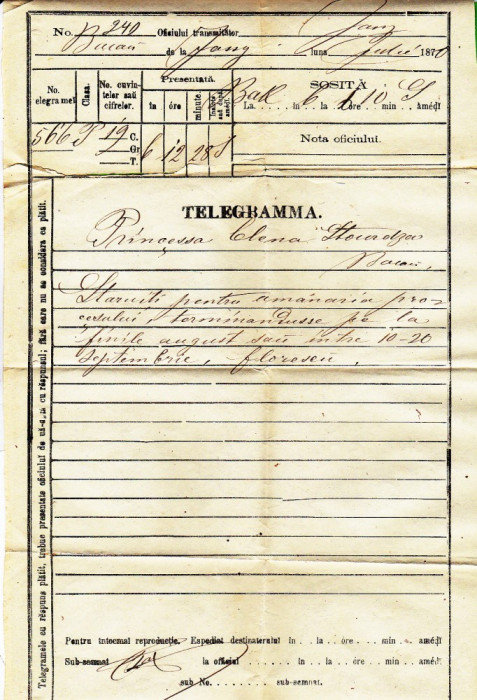 No. 240 Oficiului transmitător
Bacau de la luna Iuliu 1870
No. telegramei
Clasa.
No. cuvintelor sau cifrelor.
Presentată.
în
óre
minute.
SOSITĂ
La 6 în la óre 1 10 min. S amédi
566 P 19 C.
Gr
T.
6 12 28 S
Nota oficiului.
TELEGRAMMA.
Prinçessa Elena Stourdza
Bacau,
Staruiti pentru amânaria pro-
cesului terminandusse pe la
finile august sau intre 10-20
Septembrie, Florescu.
Telegramele cu réspuns plătit, trebue presentate oficiului de uă-dată cu réspunsul; fără care nu se considera ca plătit.
Pentru intocmai reproducție. Espediat destinatarului în . . la . . óre . . . min . . amédi
Sub-semnat la oficiul . . . . în . . la . . óre . . . min . . amédi
sub No. . . . . sub-semnat.